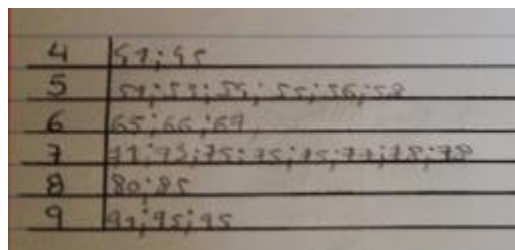 4 | 41; 45
5 | 51; 53; 54; 55; 56; 58
6 | 65; 66; 69
7 | 71; 73; 75; 75; 75; 77; 78; 78
8 | 80; 85
9 | 91; 95; 95